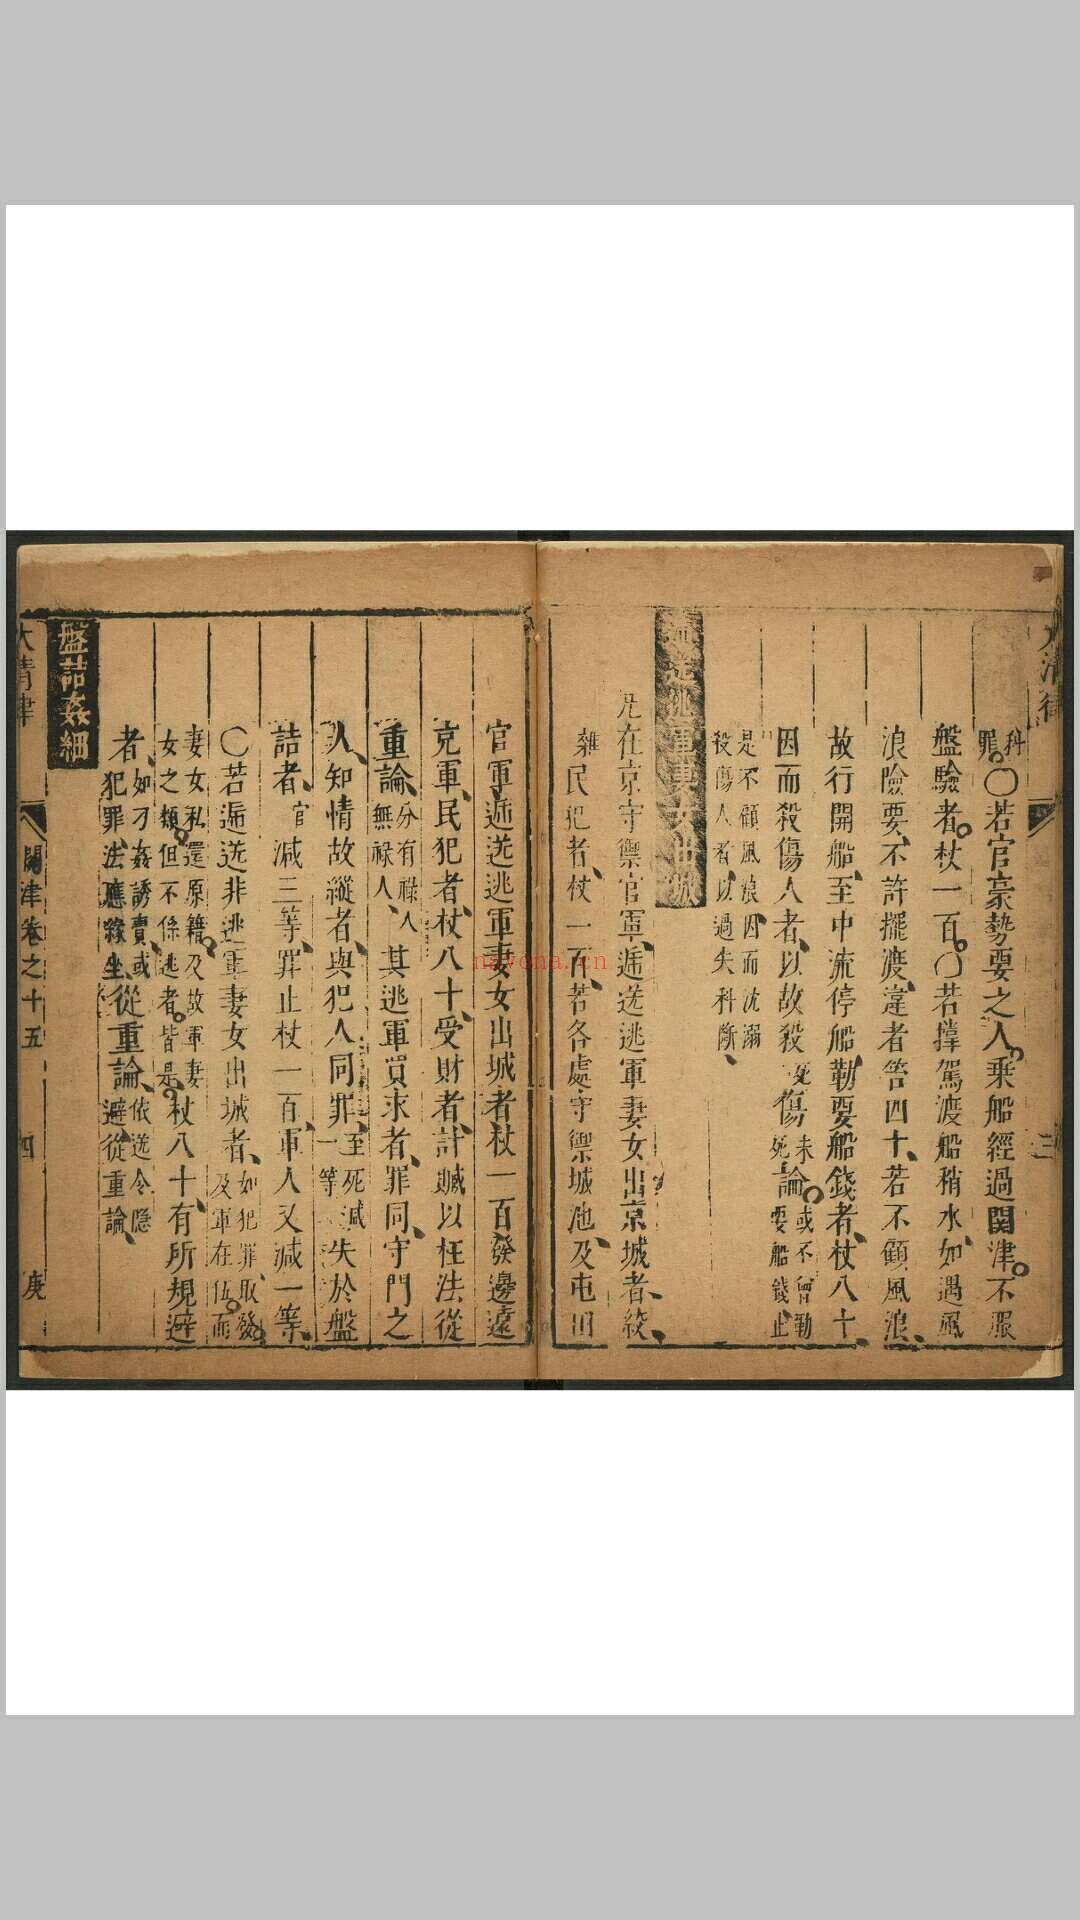 大清律
三
科罪○若官豪勢要之人乘船經過関津不服
盤驗者杖一百○若撐駕渡船稍水如遇風
浪險要不許擺渡違者笞四十若不顧風浪
故行開船至中流停船勒要船錢者杖八十
因而殺傷人者以故殺死傷未死論或不曾勒要船錢止
是不顧風浪因而沈溺殺傷人者以過失科斷
逓送逃軍妻女出城
凡在京守禦官軍逓送逃軍妻女出京城者絞
雜民犯者杖一百若各處守禦城池及屯田
官軍逓送逃軍妻女出城者杖一百發邊遠
充軍民犯者杖八十受財者計贓以枉法從
重論分有祿人無祿人其逃軍買求者罪同守門之
人知情故縱者與犯人同罪至死減一等失於盤
詰者官減三等罪止杖一百軍人又減一等
○若逓送非逃軍妻女出城者如犯罪取發及軍在伍而
妻女私還原籍及故軍妻女之類但不係逃者皆是杖八十有所規避
者如刁姦誘賣或犯罪法應緣坐從重論依送令隱避從重論
盤詰姦細
大清律
關津卷之十五
四
庚
nayona.cn